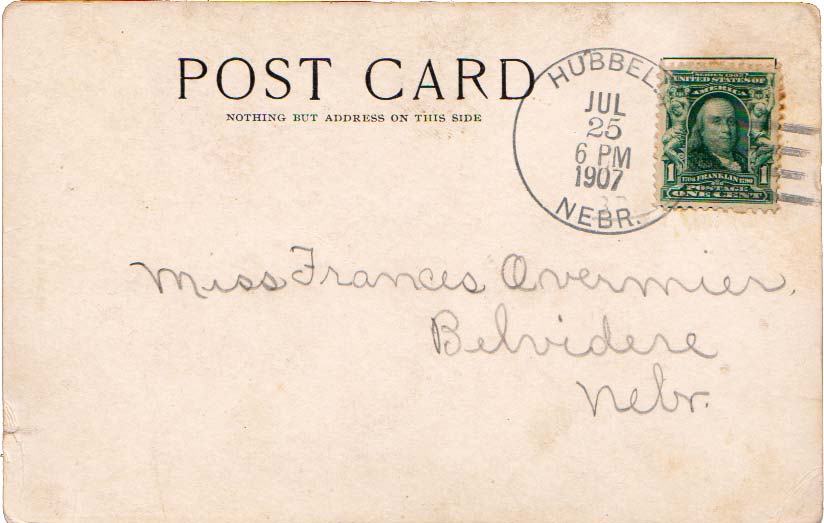 POST CARD
NOTHING BUT ADDRESS ON THIS SIDE
HUBBELL
JUL
25
6 PM
1907
NEBR.
SERIES 1902
UNITED STATES OF
AMERICA
1706 FRANKLIN 1790
1 POSTAGE 1
ONE CENT
Miss Frances Overmier,
Belvidere
Nebr.